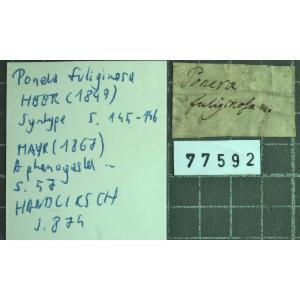 Ponera fuliginosa
HEER (1849)
Syntype S. 145-146
MAYR (1867)
Aphaenogaster -
S. 57
HANDLIRSCH
S. 874
Ponera
fuliginosa m.
77592